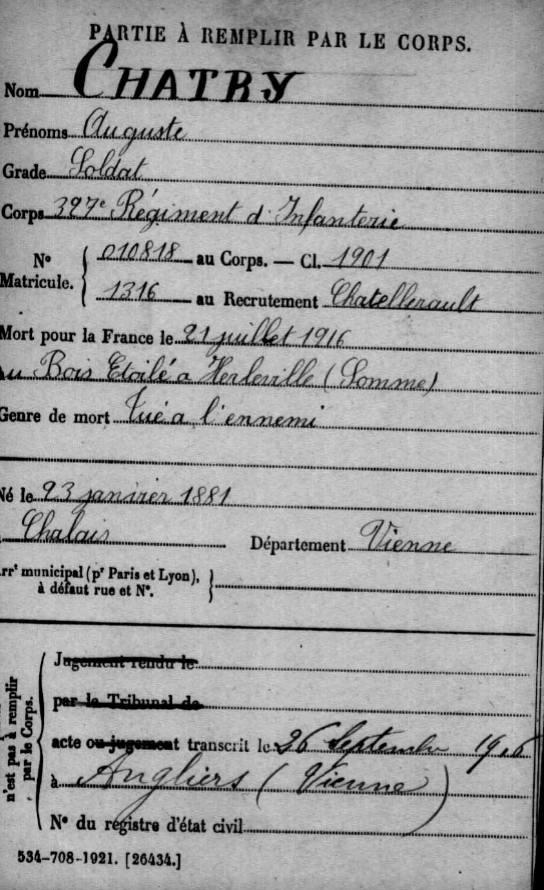 PARTIE À REMPLIR PAR LE CORPS.
Nom CHATRY
Prénoms Auguste
Grade Soldat
Corps 327e Régiment d'Infanterie
No Matricule. 010818 au Corps. — Cl. 1901
1316 au Recrutement Chatellerault
Mort pour la France le 21 juillet 1916
au Bois Etoilé a Herleville (Somme)
Genre de mort Tué a l'ennemi
Né le 23 janvier 1881
Chalais Département Vienne
Arrt municipal (pr Paris et Lyon),
à défaut rue et No.
n'est pas à remplir
par le Corps.
Jugement rendu le
par le Tribunal de
acte ou jugement transcrit le 26 Septembre 1916
à Angliers (Vienne)
No du registre d'état civil
534-708-1921. [26434.]